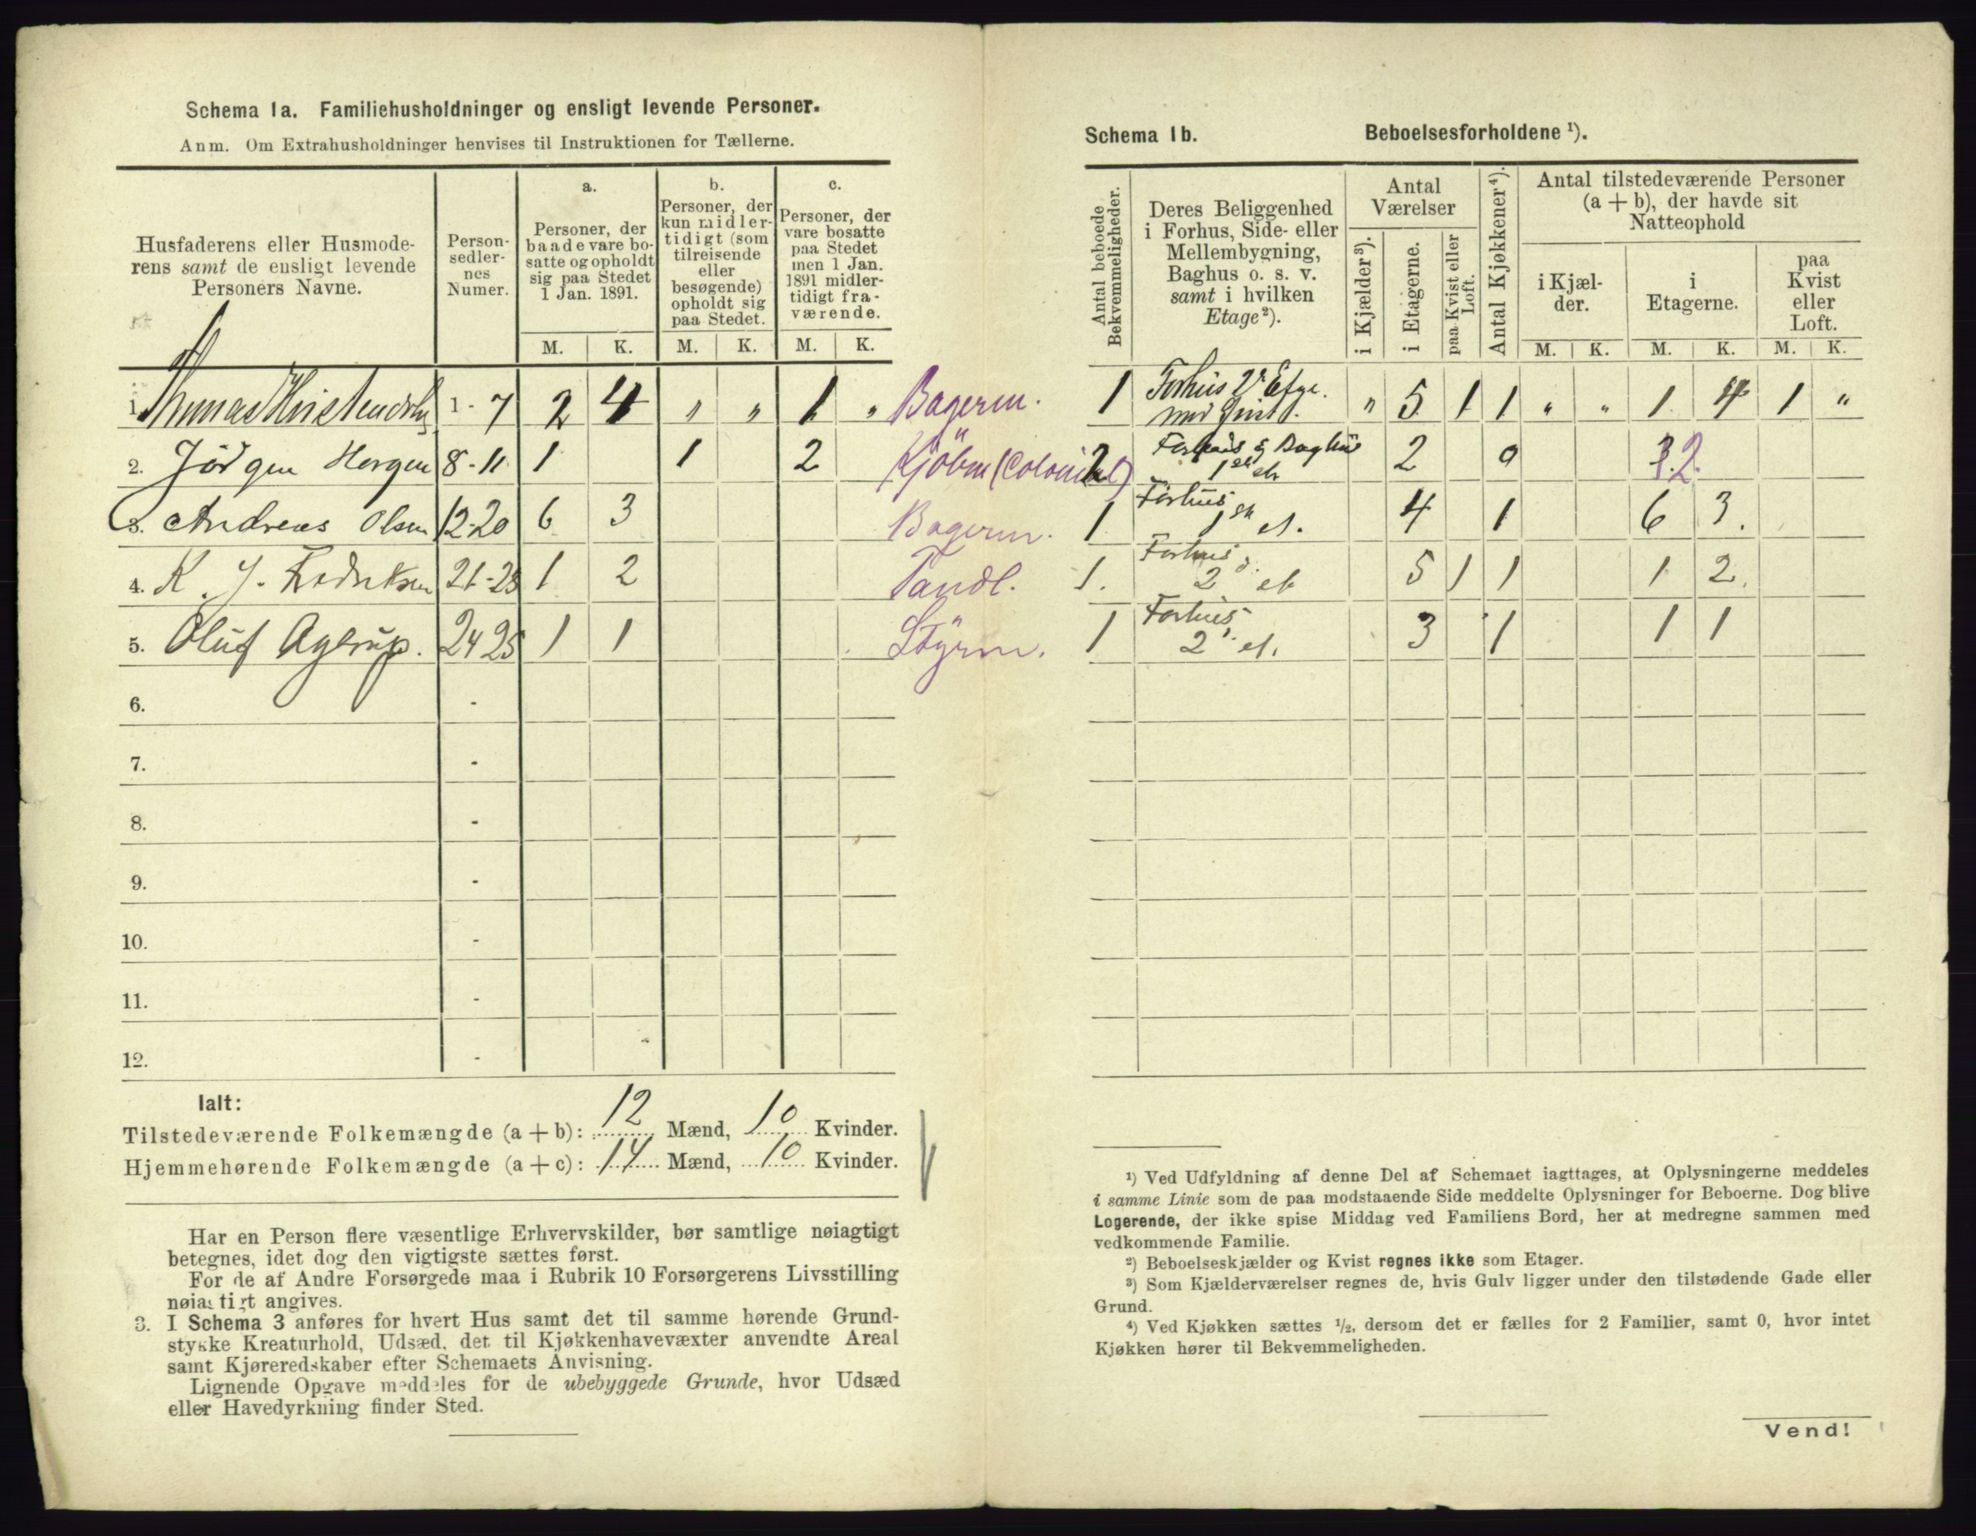 Schema 1a. Familiehusholdninger og ensligt levende Personer.
Anm. Om Extrahusholdninger henvises til Instruktionen for Tællerne.
Husfaderens eller Husmode-
rens samt de ensligt levende
Personers Navne.
Person-
sedler-
nes
Numer.
a.
Personer, der
baade vare bo-
satte og opholdt
sig paa Stedet
1 Jan. 1891.
b.
Personer, der
kun midler-
tidigt (som
tilreisende
eller
besøgende)
opholdt sig
paa Stedet.
c.
Personer, der
vare bosatte
paa Stedet
men 1 Jan.
1891 midler-
tidigt fra-
værende.
M. K. M. K. M. K.
1. Thomas 1 - 7 2 4 " " 1 " Bagerm.
2. Jørgen Horgen 8-11 1 1 2 Kjöbm (Colonial)
3. Andreas Olsen 12-20 6 3 Bagerm.
4. K. J. Fredriksen 21-23 1 2 Tandl.
5. Oluf Agerup. 24 25 1 1 Styrm.
6. -
7. -
8. -
9. -
10. -
11. -
12. -
Ialt:
Tilstedeværende Folkemængde (a + b): 12 Mænd, 10 Kvinder.
Hjemmehørende Folkemængde (a + c): 14 Mænd, 10 Kvinder.
Har en Person flere væsentlige Erhvervskilder, bør samtlige nøiagtigt
betegnes, idet dog den vigtigste sættes først.
For de af Andre Forsørgede maa i Rubrik 10 Forsørgerens Livsstilling
nøiagtigt angives.
3. I Schema 3 anføres for hvert Hus samt det til samme hørende Grund-
stykke Kreaturhold, Udsæd, det til Kjøkkenhavevæxter anvendte Areal
samt Kjøreredskaber efter Schemaets Anvisning.
Lignende Opgave meddeles for de ubebyggede Grunde, hvor Udsæd
eller Havedyrkning finder Sted.
Schema 1b. Beboelsesforholdene ¹).
Antal beboede
Bekvemmeligheder.
Deres Beliggenhed
i Forhus, Side- eller
Mellembygning,
Baghus o. s. v.
samt i hvilken
Etage²).
Antal
Værelser
i Kjælder³).
i Etagerne.
paa Kvist eller
Loft.
Antal Kjøkkener⁴).
Antal tilstedeværende Personer
(a + b), der havde sit
Natteophold
i Kjæl-
der.
i
Etagerne.
paa
Kvist
eller
Loft.
M. K. M. K. M. K.
1 Forhus 2 Etge. " 5 1 1 " " 1 4 1 "
2 Forhus & Baghus 1ste et 2 0 2
1 Forhus 1ste et. 4 1 6 3.
1. Forhus 2 et 5 1 1 1 2.
1 Forhus 2 et. 3 1 1 1
¹) Ved Udfyldning af denne Del af Schemaet iagttages, at Oplysningerne meddeles
i samme Linie som de paa modstaaende Side meddelte Oplysninger for Beboerne. Dog blive
Logerende, der ikke spise Middag ved Familiens Bord, her at medregne sammen med
vedkommende Familie.
²) Beboelseskjælder og Kvist regnes ikke som Etager.
³) Som Kjælderværelser regnes de, hvis Gulv ligger under den tilstødende Gade eller
Grund.
⁴) Ved Kjøkken sættes ½, dersom det er fælles for 2 Familier, samt 0, hvor intet
Kjøkken hører til Bekvemmeligheden.
Vend!